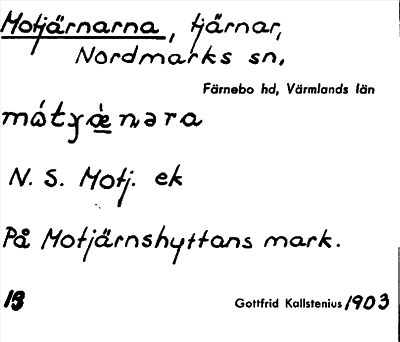 Motjärnarna, tjärnar,
Nordmarks sn.
Färnebo hd, Värmlands län
N. S. Motj. ek
På Motjärnshyttans mark.
13
Gottfrid Kallstenius 1903